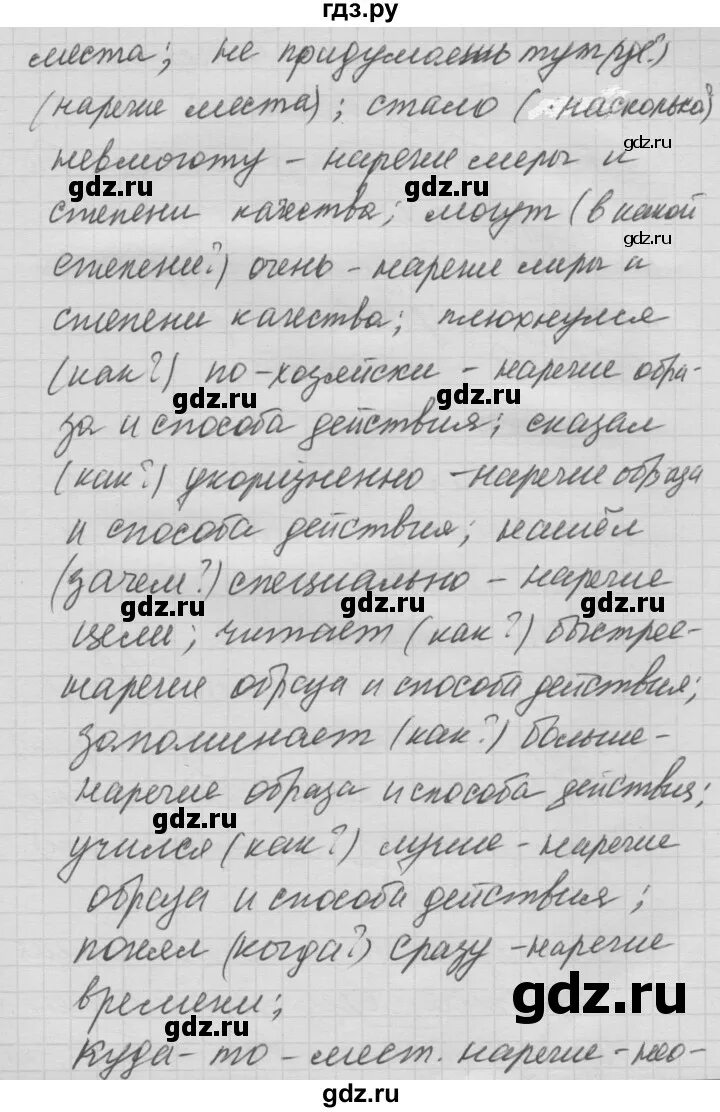 гдз.ру
места; не придумаешь тут (где?)
(наречие места); стало (насколько?)
gdz.ru
невмоготу – наречие меры и
gdz.ru gdz.ru
степени качества; могут (в какой
gdz.ru
степени?) очень – наречие меры и
степени качества; плюхнулся
(как?) по-хозяйски – наречие обра-
gdz.ru gdz.ru
за и способа действия; сказал
(как?) укоризненно – наречие образа
и способа действия; нашёл
(зачем?) специально – наречие
gdz.ru gdz.ru gdz.ru
цели; читает (как?) быстрее –
наречие образа и способа действия;
запоминает (как?) больше –
наречие образа и способа действия;
gdz.ru
учился (как?) лучше – наречие
образа и способа действия;
понял (когда?) сразу – наречие
времени;
gdz.ru
gdz.ru
куда-то – мест. наречие – нео-
gdz.ru